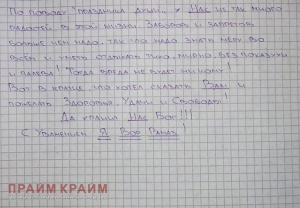 По поводу "праздника души", у Нас не так много
радостей в этой жизни. Заборов и запретов
больше чем надо. Так что надо знать меру во
всём и уметь отдыхать тихо, мирно, без показухи
и палева! Тогда вреда не будет ни кому!
Вот в кратце, что хотел сказать Вам и
пожелать Здоровья, Удачи и Свободы!
Да хранит Нас Бог!!!
С Уважением Я Вор
ПРАЙМ КРАЙМ